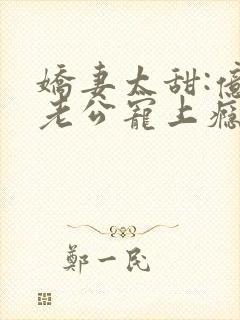 嬌妻太甜:億
老公寵上癮
鄭一民